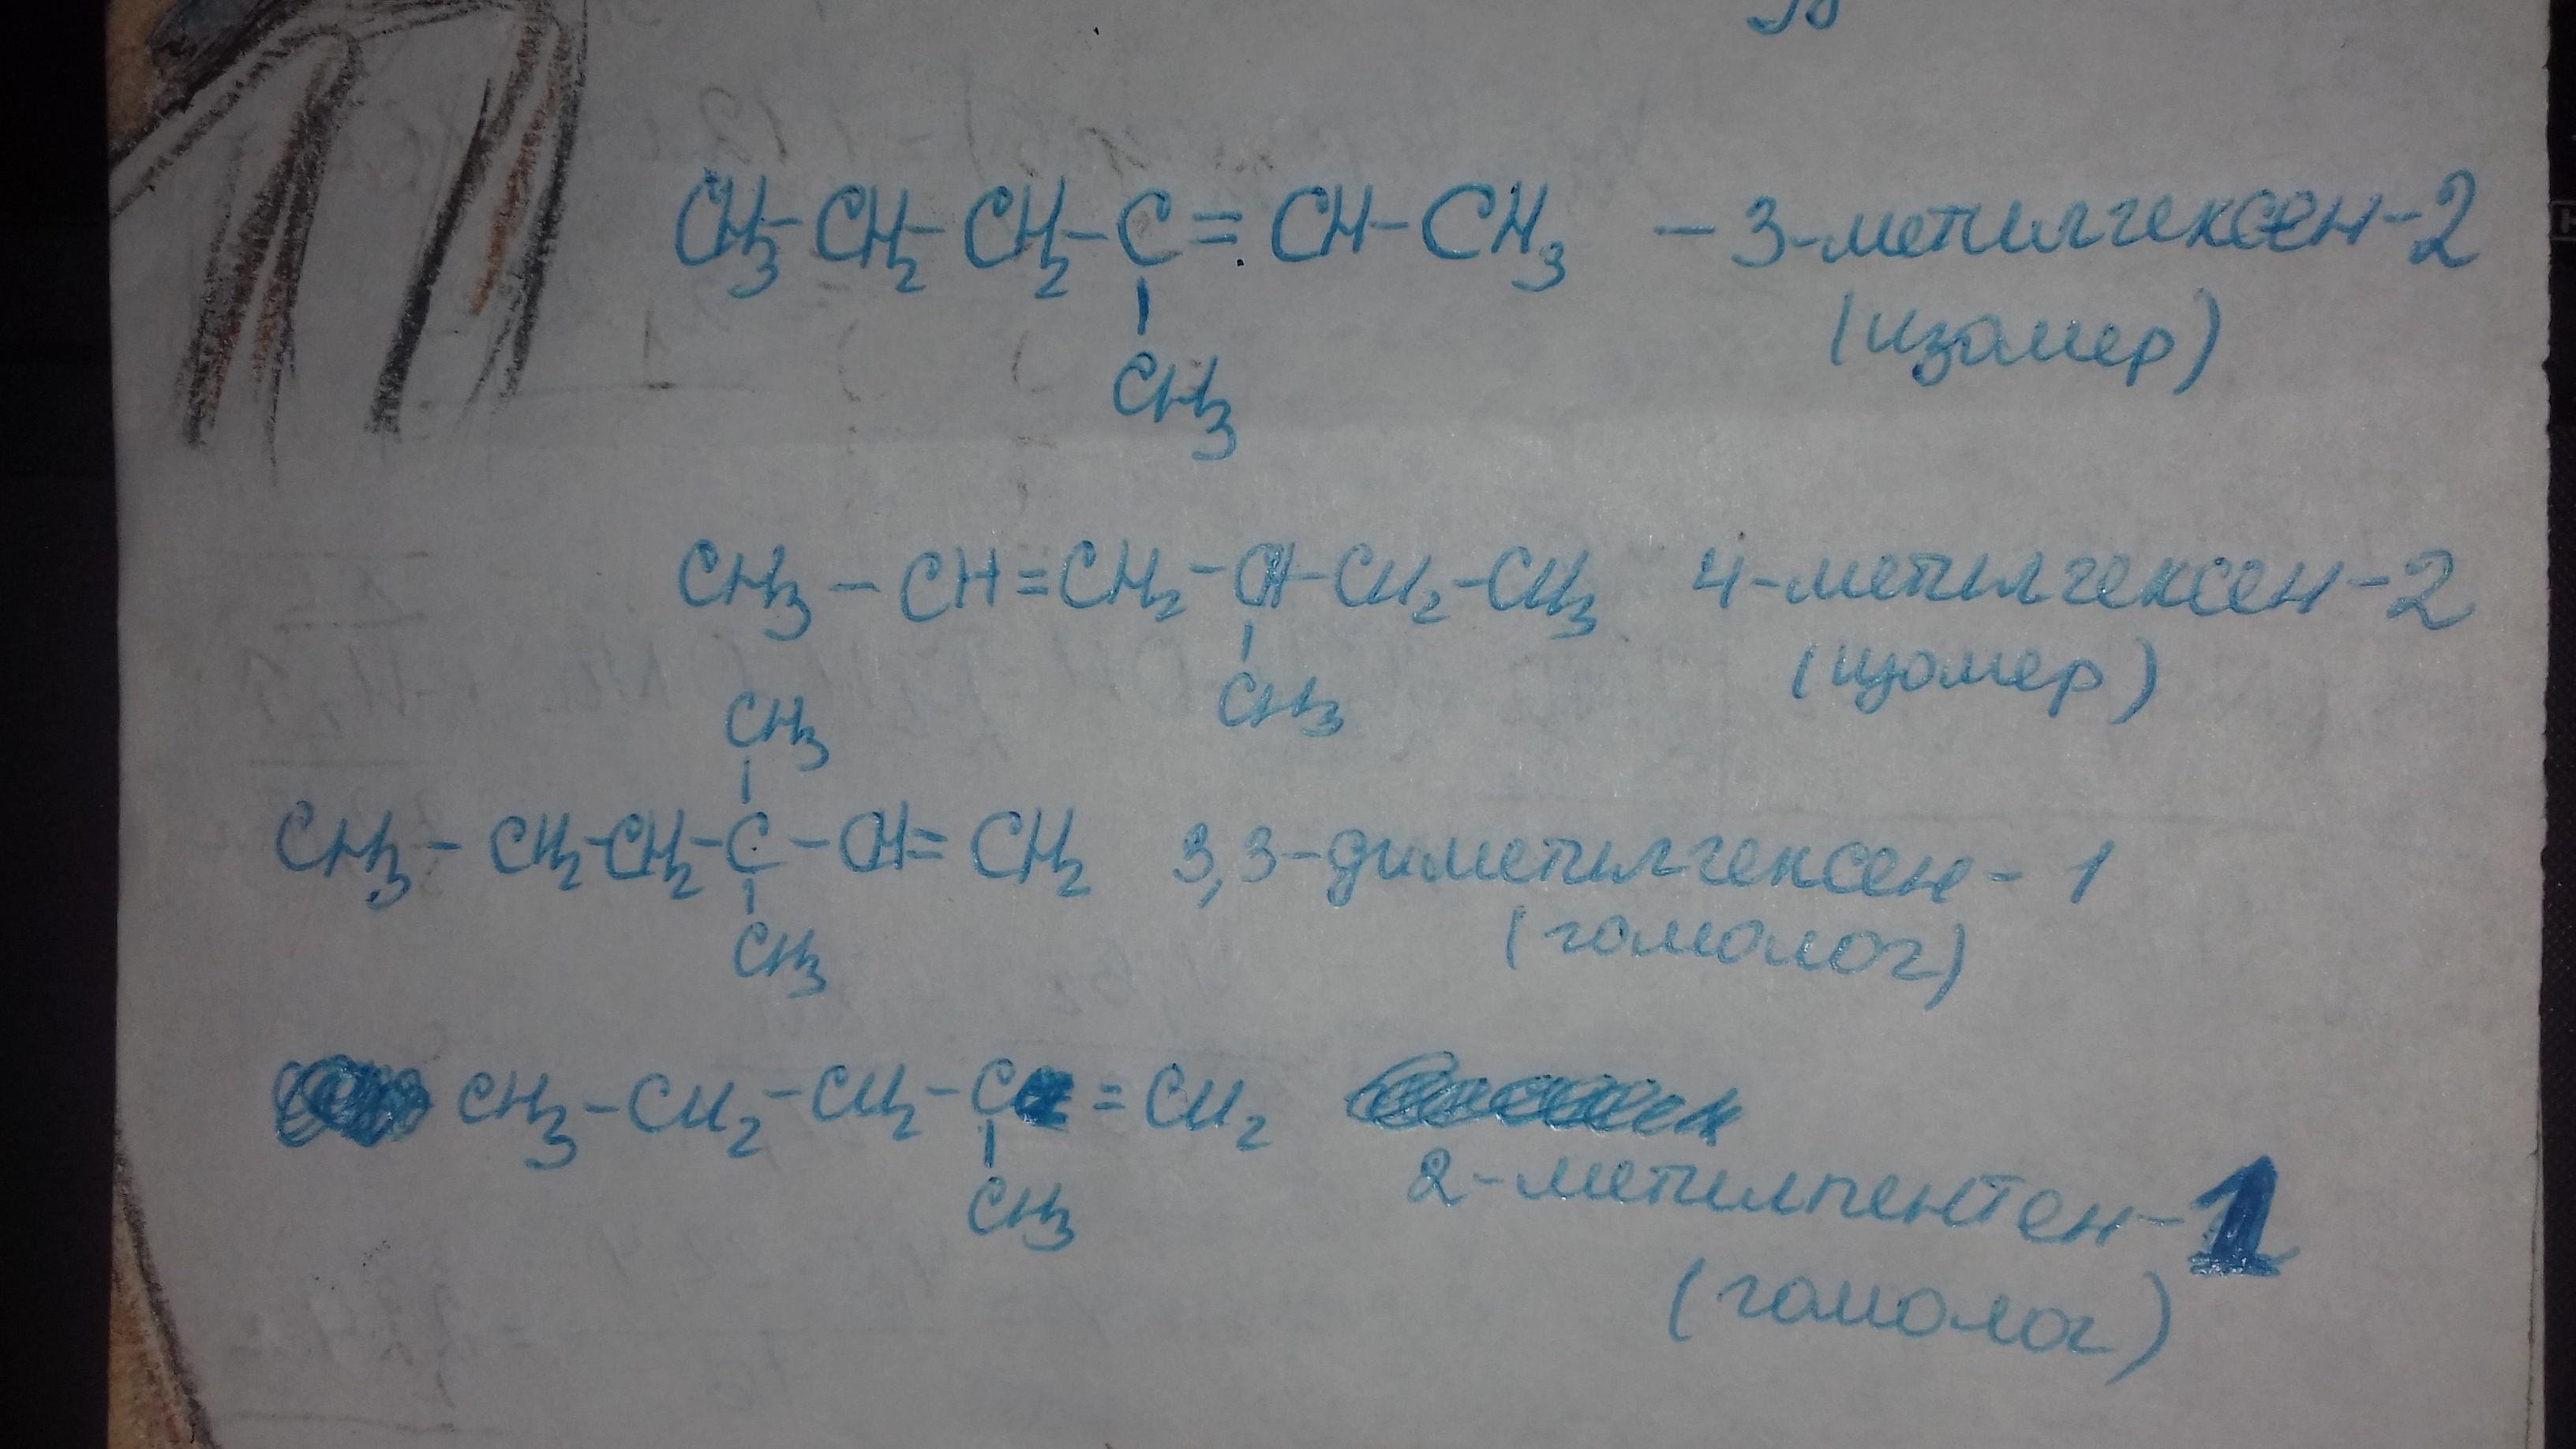 CH₃-CH₂-CH₂-C=CH-CH₃ - 3-метилгексен-2
(изомер)
CH₃
CH₃-CH=CH₂-CH-CH₂-CH₃ 4-метилгексен-2
(изомер)
CH₃
CH₃
CH₃-CH₂-CH₂-C-CH=CH₂ 3,3-диметилгексен-1
(гомолог)
CH₃
CH₃-CH₂-CH₂-C=CH₂
2-метилпентен-1
CH₃
(гомолог)